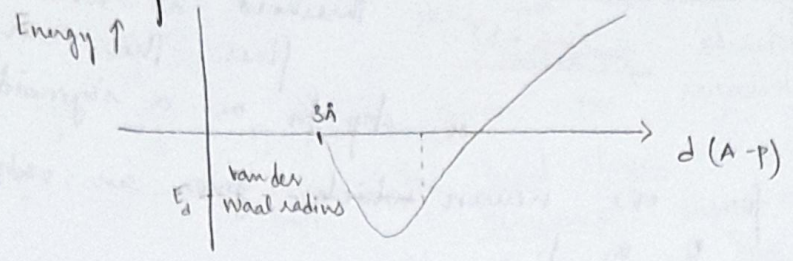 Energy ↑
3Å
d (A-P)
van der
Waal radius
E_d